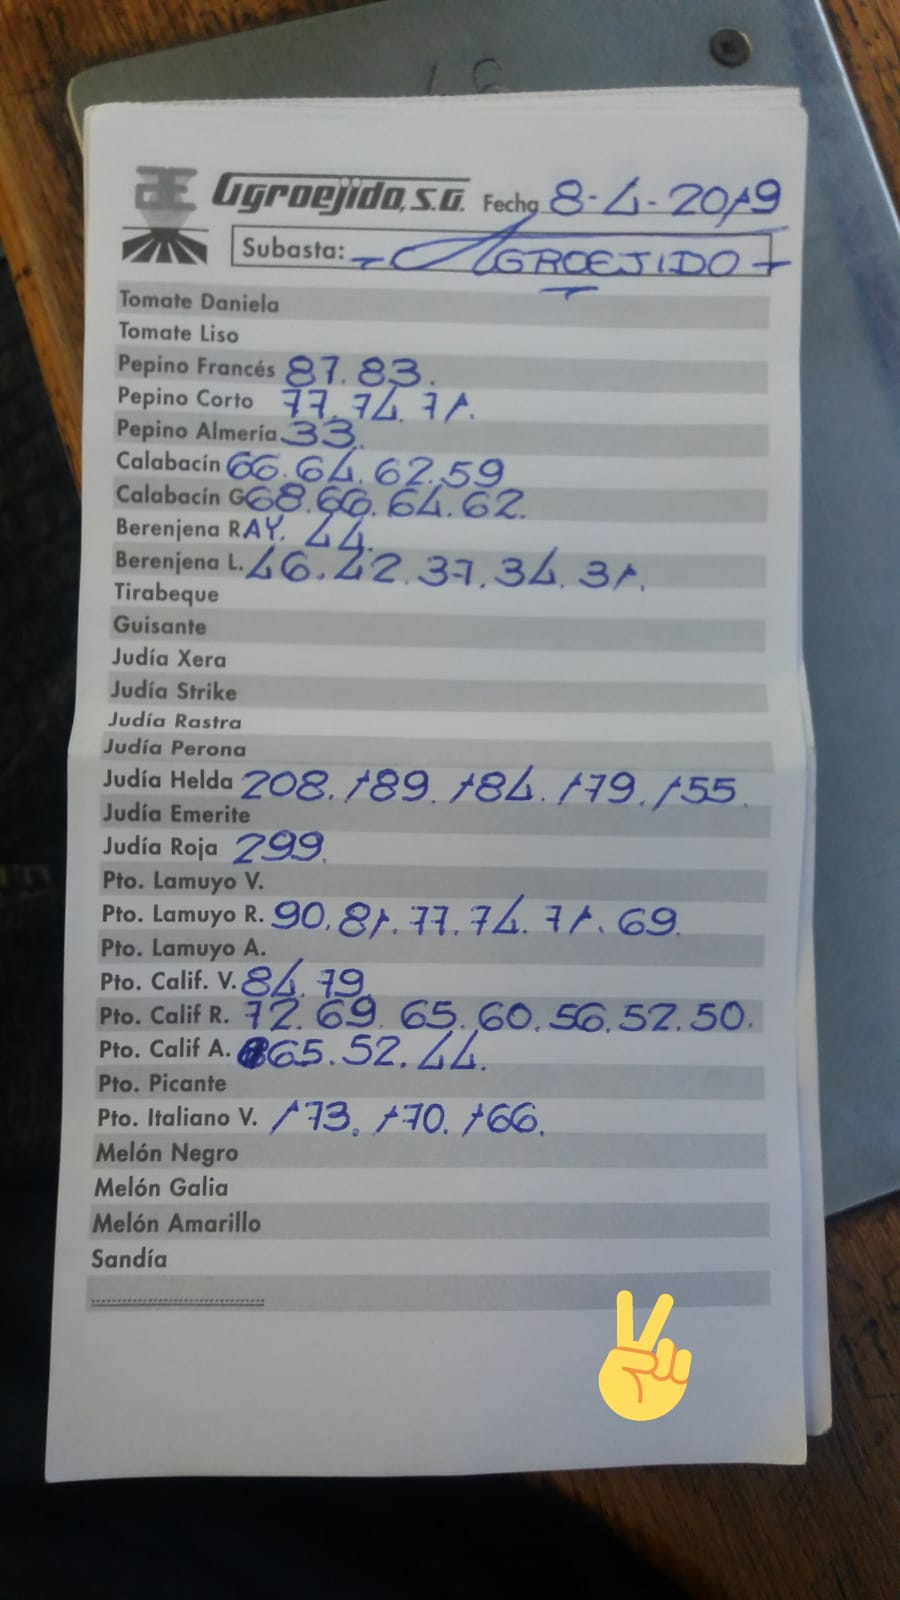 AE Agroejido, S.A. Fecha 8-4-2019
Subasta: AGROEJIDO
Tomate Daniela
Tomate Liso
Pepino Francés 87. 83.
Pepino Corto 77. 74. 71.
Pepino Almería 33.
Calabacín 66. 64. 62. 59
Calabacín G 68. 66. 64. 62.
Berenjena RAY. 44.
Berenjena L. 46. 42. 37. 34. 31.
Tirabeque
Guisante
Judía Xera
Judía Strike
Judía Rastra
Judía Perona
Judía Helda 208. 189. 184. 179. 155.
Judía Emerite
Judía Roja 299.
Pto. Lamuyo V.
Pto. Lamuyo R. 90. 81. 77. 74. 71. 69.
Pto. Lamuyo A.
Pto. Calif. V. 84. 79
Pto. Calif R. 72. 69. 65. 60. 56. 52. 50.
Pto. Calif A. 65. 52. 44.
Pto. Picante
Pto. Italiano V. 173. 170. 166.
Melón Negro
Melón Galia
Melón Amarillo
Sandía